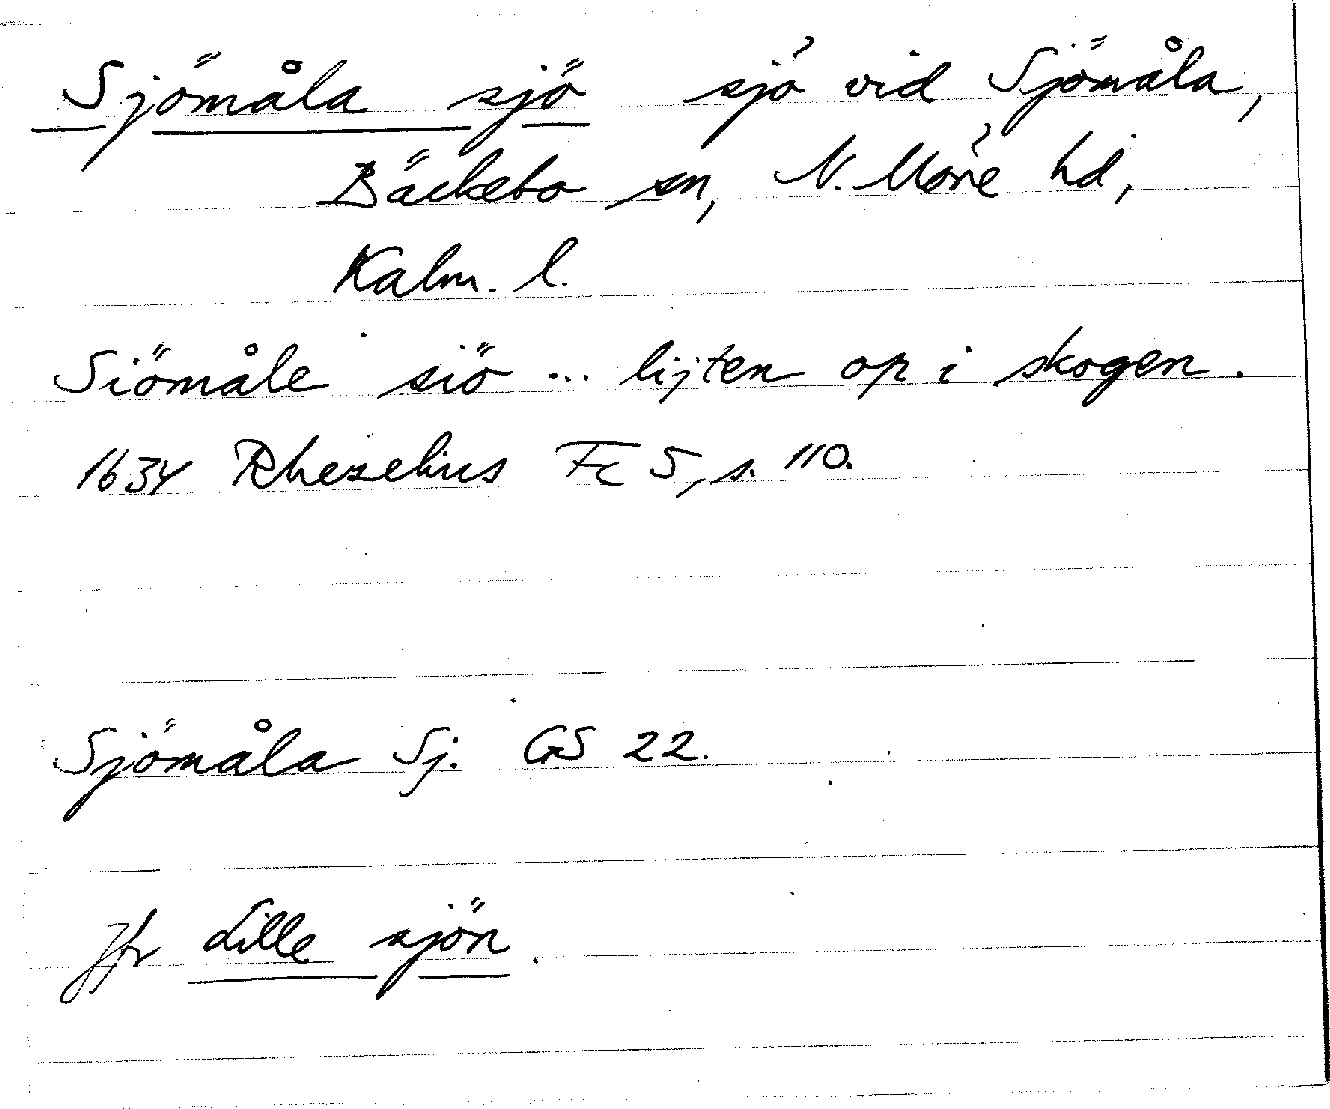 Sjömåla sjö sjö vid Sjömåla,
Bäckebo sn, N. Möre hd,
Kalm. l.
Siömåle siö ... lijten op i skogen.
1634 Rhezelius Fc 5, s. 110.
Sjömåla Sj. GS 22.
Jfr Lille sjön.